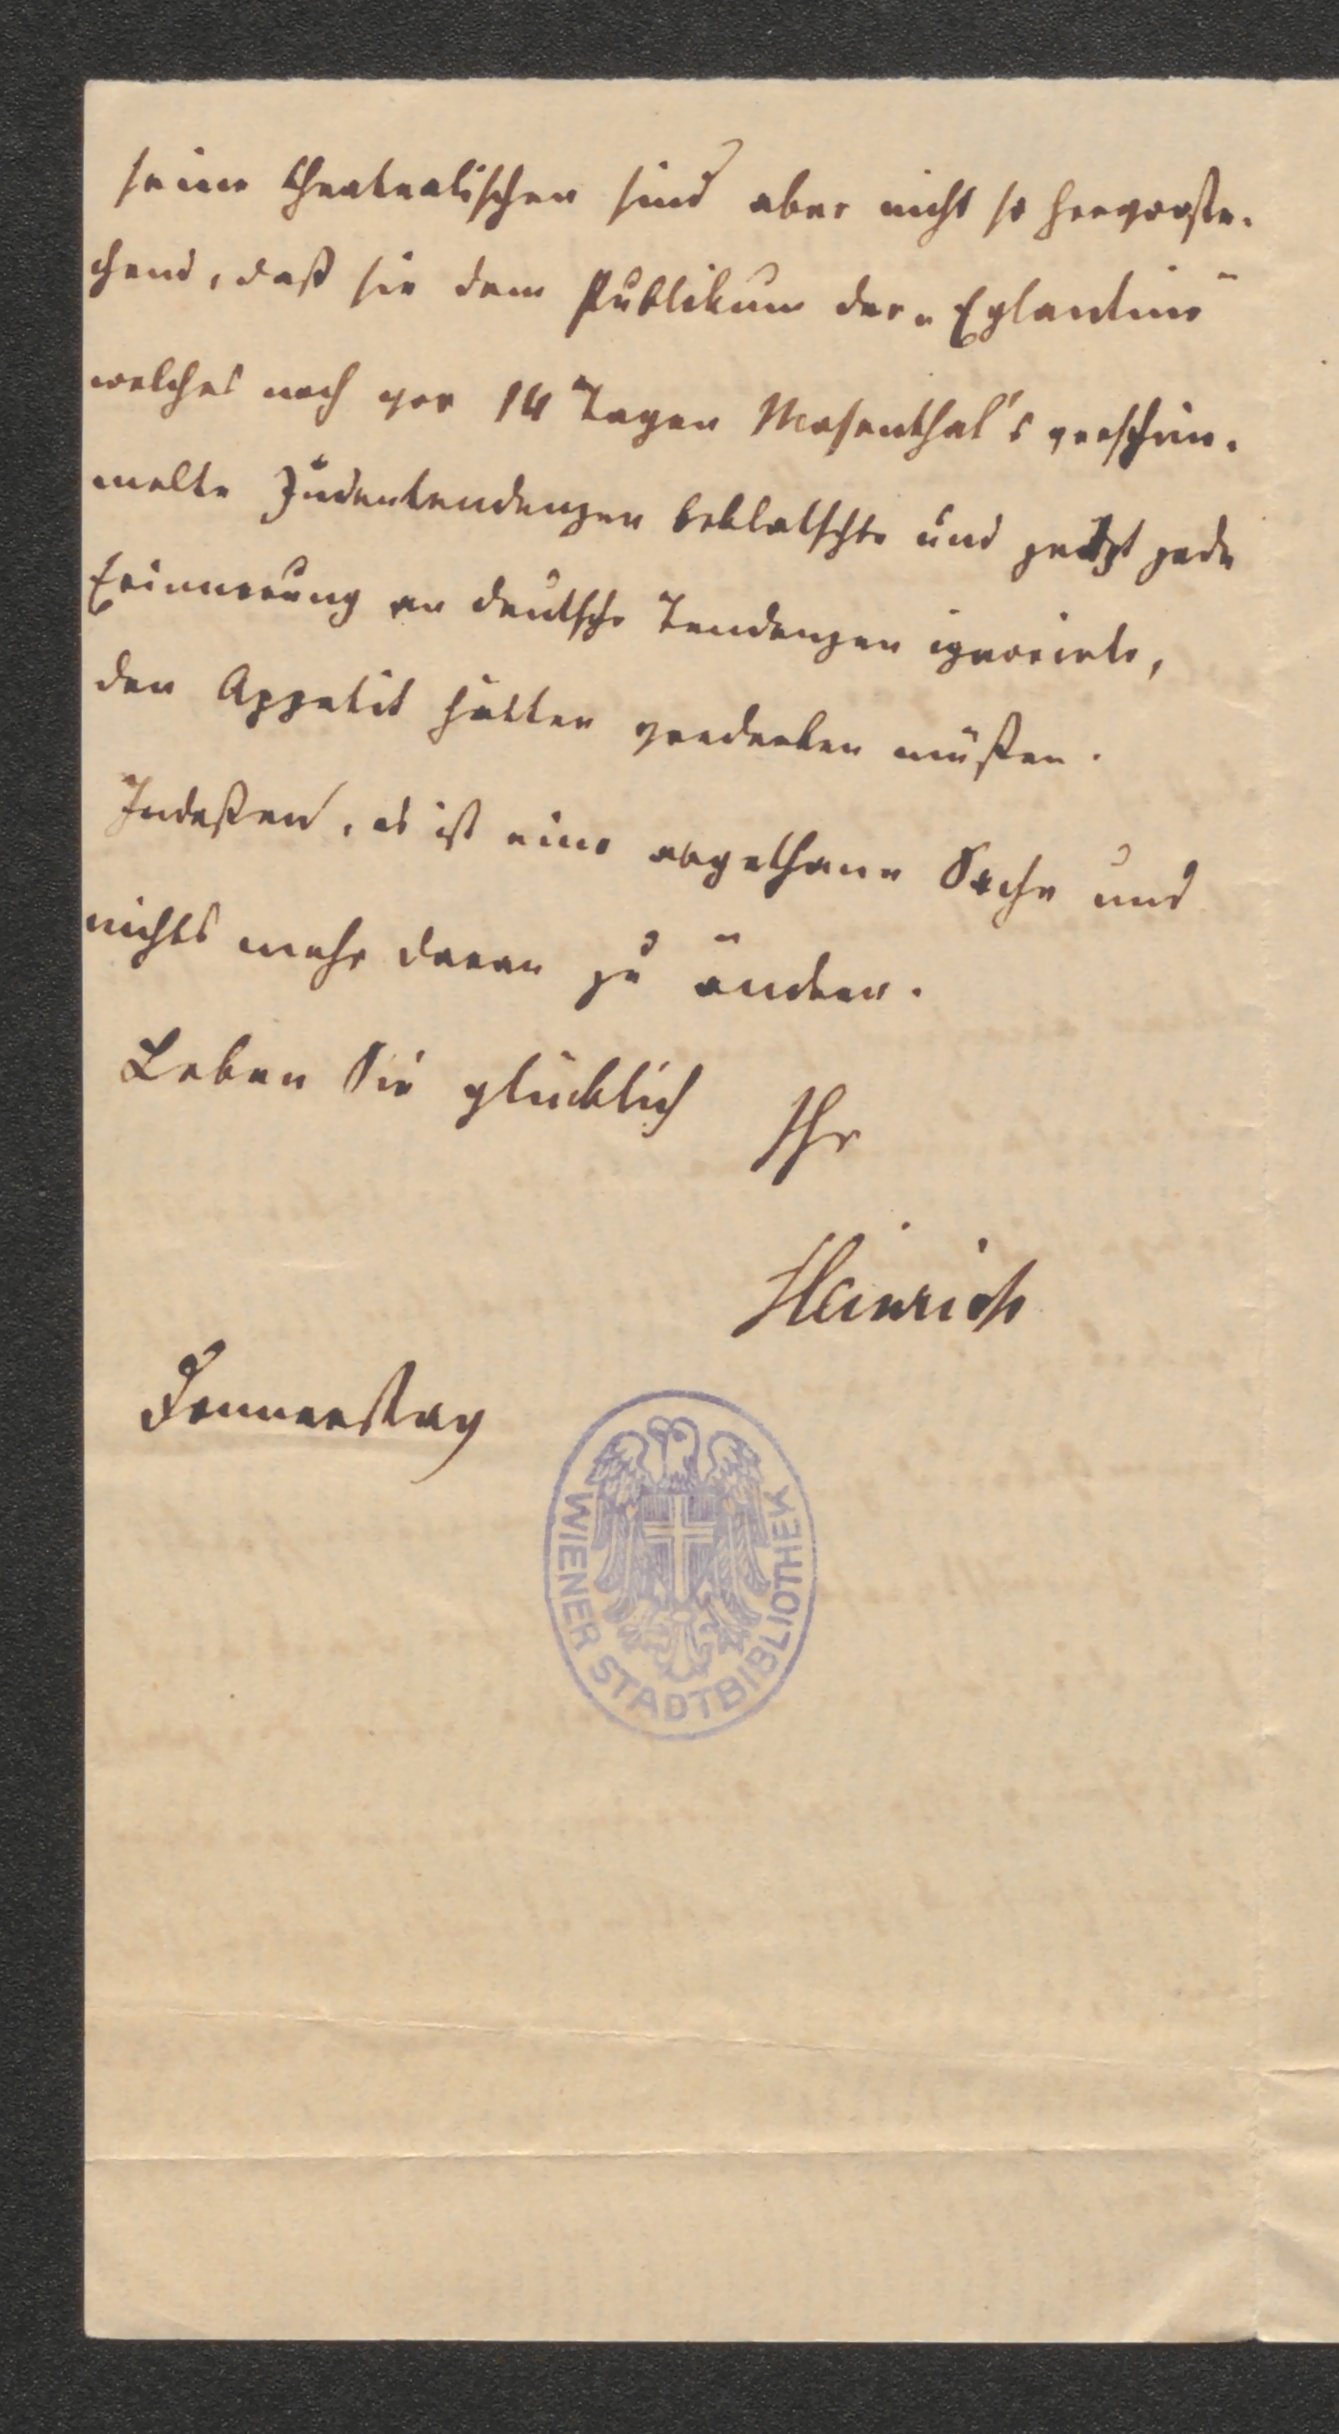 seine theatralischen sind aber nicht so hervorste-
chend, daß sie dem Publikum der „Eglantine“
welches noch vor 14 Tagen Mosenthal's verschim-
melte Judentendenzen beklatschte und jetzt jede
Erinnerung an deutsche Tendenzen ignorirte,
den Appetit hätten verderben müßen.
Indeßen, es ist eine abgethane Sache und
nichts mehr daran zu ändern.
Leben Sie glücklich Ihr
Heinrich
Donnerstag
WIENER STADTBIBLIOTHEK